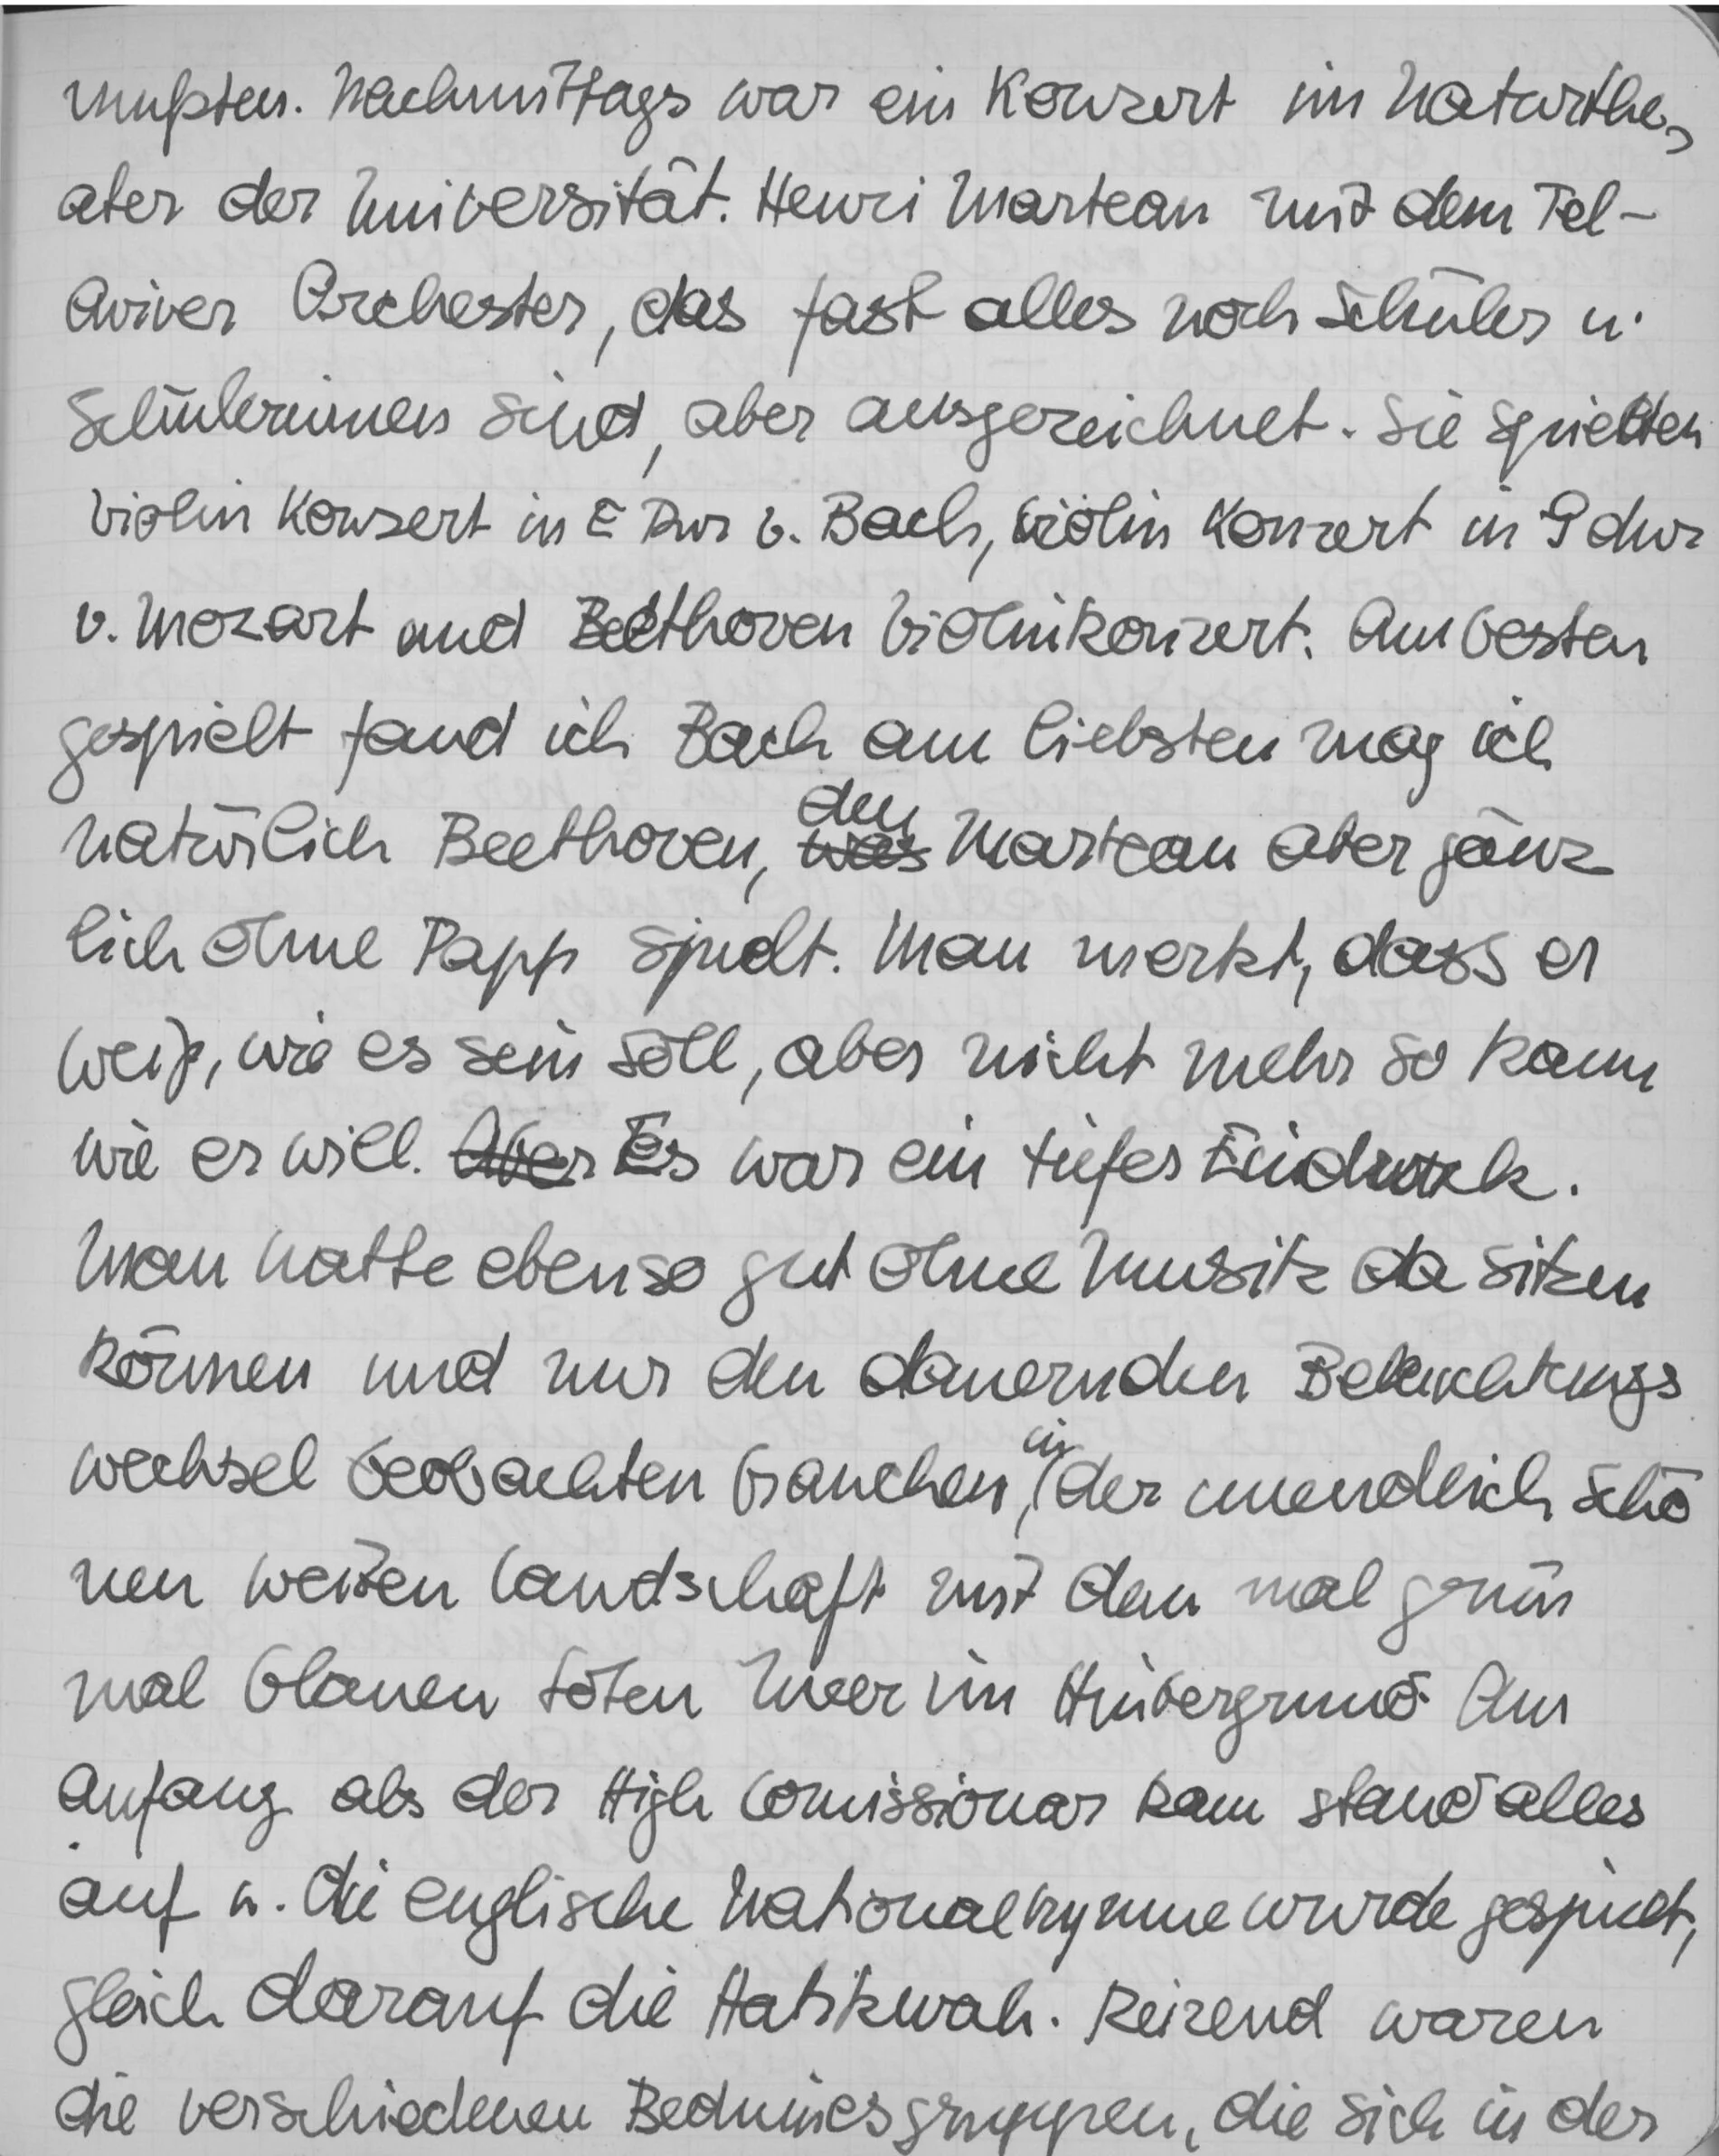 mußten. Nachmittags war ein Konzert im Naturthe-
ater der Universität. Henri Marteau mit dem Tel-
Aviver Orchester, das fast alles noch Schüler u.
Schülerinnen sind, aber ausgezeichnet. Sie spielten
Violin Konzert in E Dur v. Bach, Violin Konzert in G dur
v. Mozart und Beethoven Violinkonzert. Am besten
gespielt fand ich Bach am liebsten mag ich
natürlich Beethoven, den Marteau aber gänz
lich ohne Papp spielt. Man merkt, dass er
weiß, wie es sein soll, aber nicht mehr so kann
wie er will. Aber Es war ein tiefer Eindruck.
Man hätte ebenso gut ohne Musik da sitzen
können und nur den dauernden Beleuchtungs
wechsel beobachten brauchen, in der unendlich schö
nen weiten Landschaft mit dem mal grün
mal blauen toten Meer im Hintergrund. Am
Anfang als der High Comissionar kam stand alles
auf u. die englische Nationalhymne wurde gespielt,
gleich darauf die Hatikwah. Reizend waren
die verschiedenen Beduinesgruppen, die sich in der